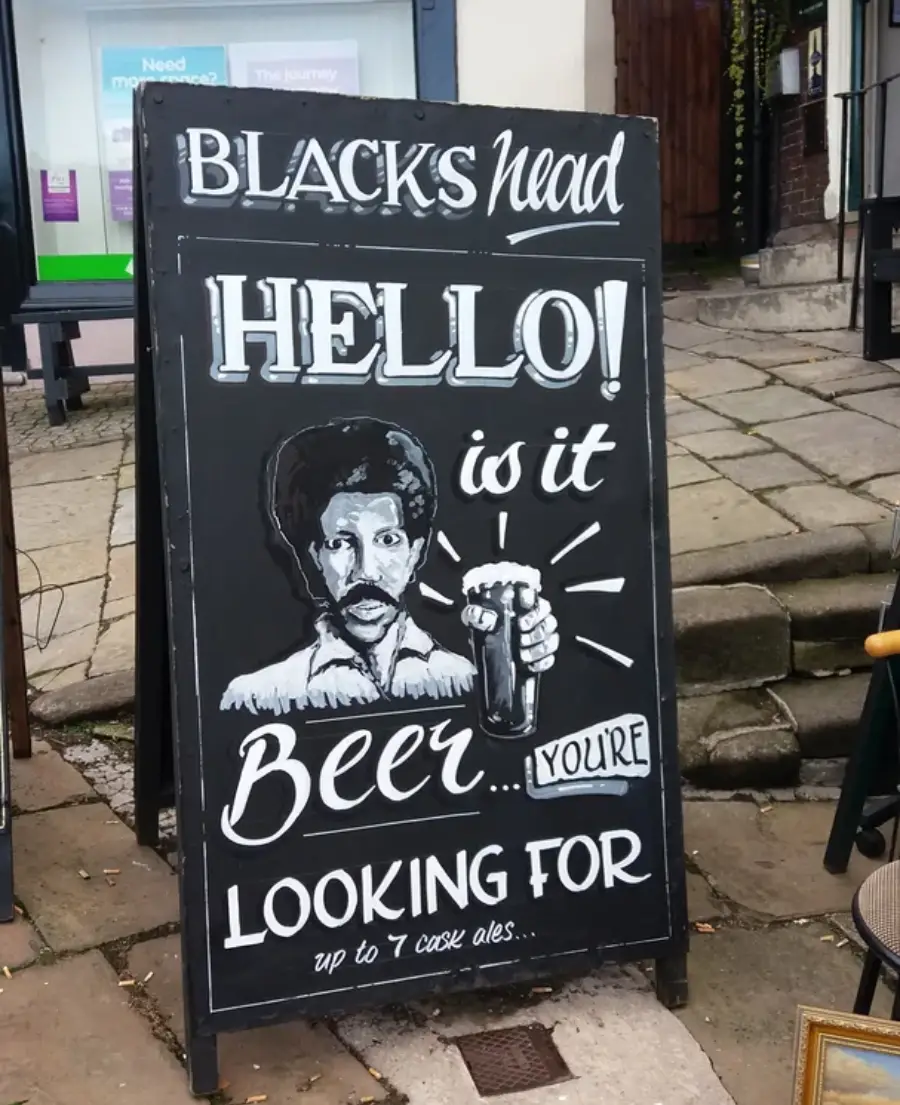 Need
more space?
The journey
BLACKS head
HELLO!
is it
Beer... YOU'RE
LOOKING FOR
up to 7 cask ales...